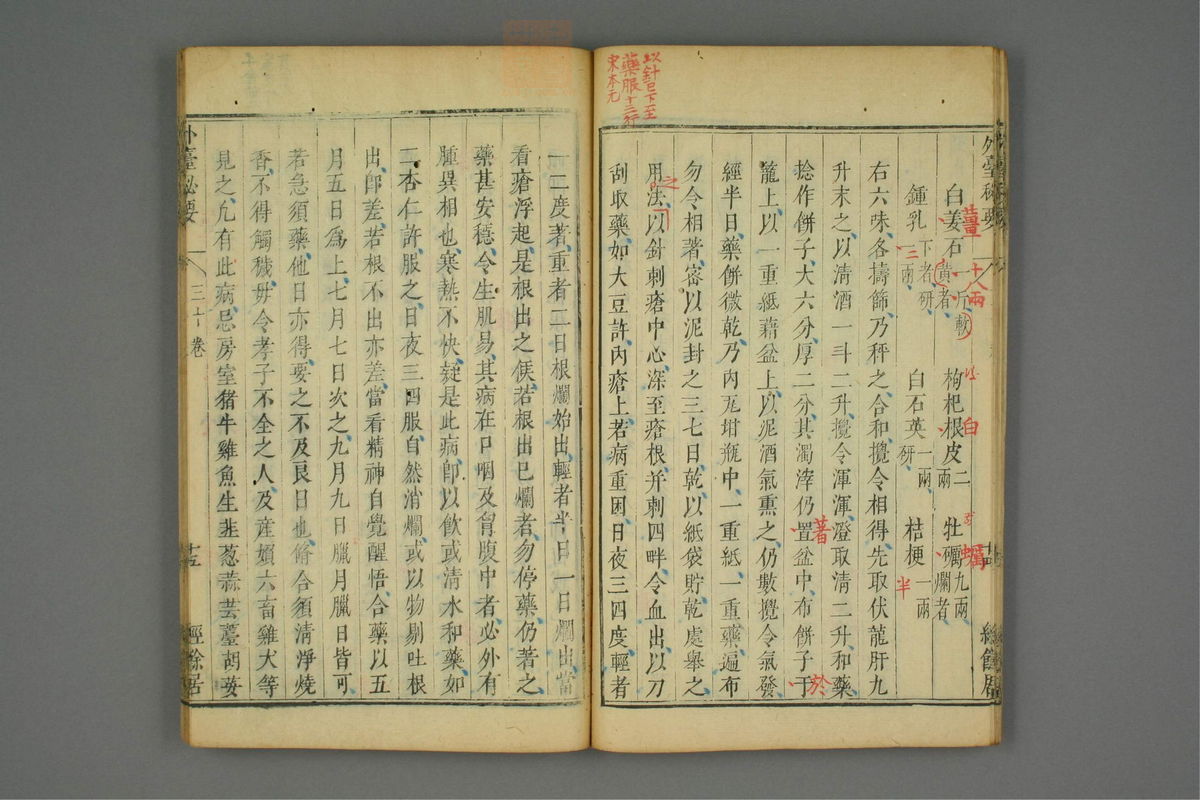 外臺秘要
卷
經餘居
以針已下至
藥服十三行
宋本元
白姜石一斤軟黃者 枸杞根皮二兩 牡礪九兩爛者
薑 十八兩 白 蠣
鍾乳二兩下者研 白石英一兩研 桔梗一兩
三 半
右六味各擣篩乃秤之合和攪令相得先取伏龍肝九
升末之以清酒一斗二升攪令渾渾澄取清二升和藥
捻作餅子大六分厚二分其濁滓仍置盆中布餅子于
著 於
籠上以一重紙藉盆上以泥酒氣熏之仍數攪令氣發
經半日藥餅微乾乃內瓦坩瓶中一重紙一重藥遍布
勿令相著密以泥封之三七日乾以紙袋貯乾處舉之
用法以針刺瘡中心深至瘡根并刺四畔令血出以刀
之
刮取藥如大豆許內瘡上若病重困日夜三四度輕者
一二度著重者二日根爛始出輕者半日一日爛出當
看瘡浮起是根出之候若根出已爛者勿停藥仍著之
藥甚安穩令生肌易其病在口咽及胷腹中者必外有
腫異相也寒熱不快疑是此病卽以飲或清水和藥如
二杏仁許服之日夜三四服自然消爛或以物剔吐根
出卽差若根不出亦差當看精神自覺醒悟合藥以五
月五日爲上七月七日次之九月九日臘月臘日皆可
若急須藥他日亦得要之不及良日也脩合須清淨燒
香不得觸穢毋令孝子不全之人及產婦六畜雞犬等
見之凢有此病忌房室猪牛雞魚生韭葱蒜芸薹胡荽
外臺秘要
三十卷
十五
經餘居